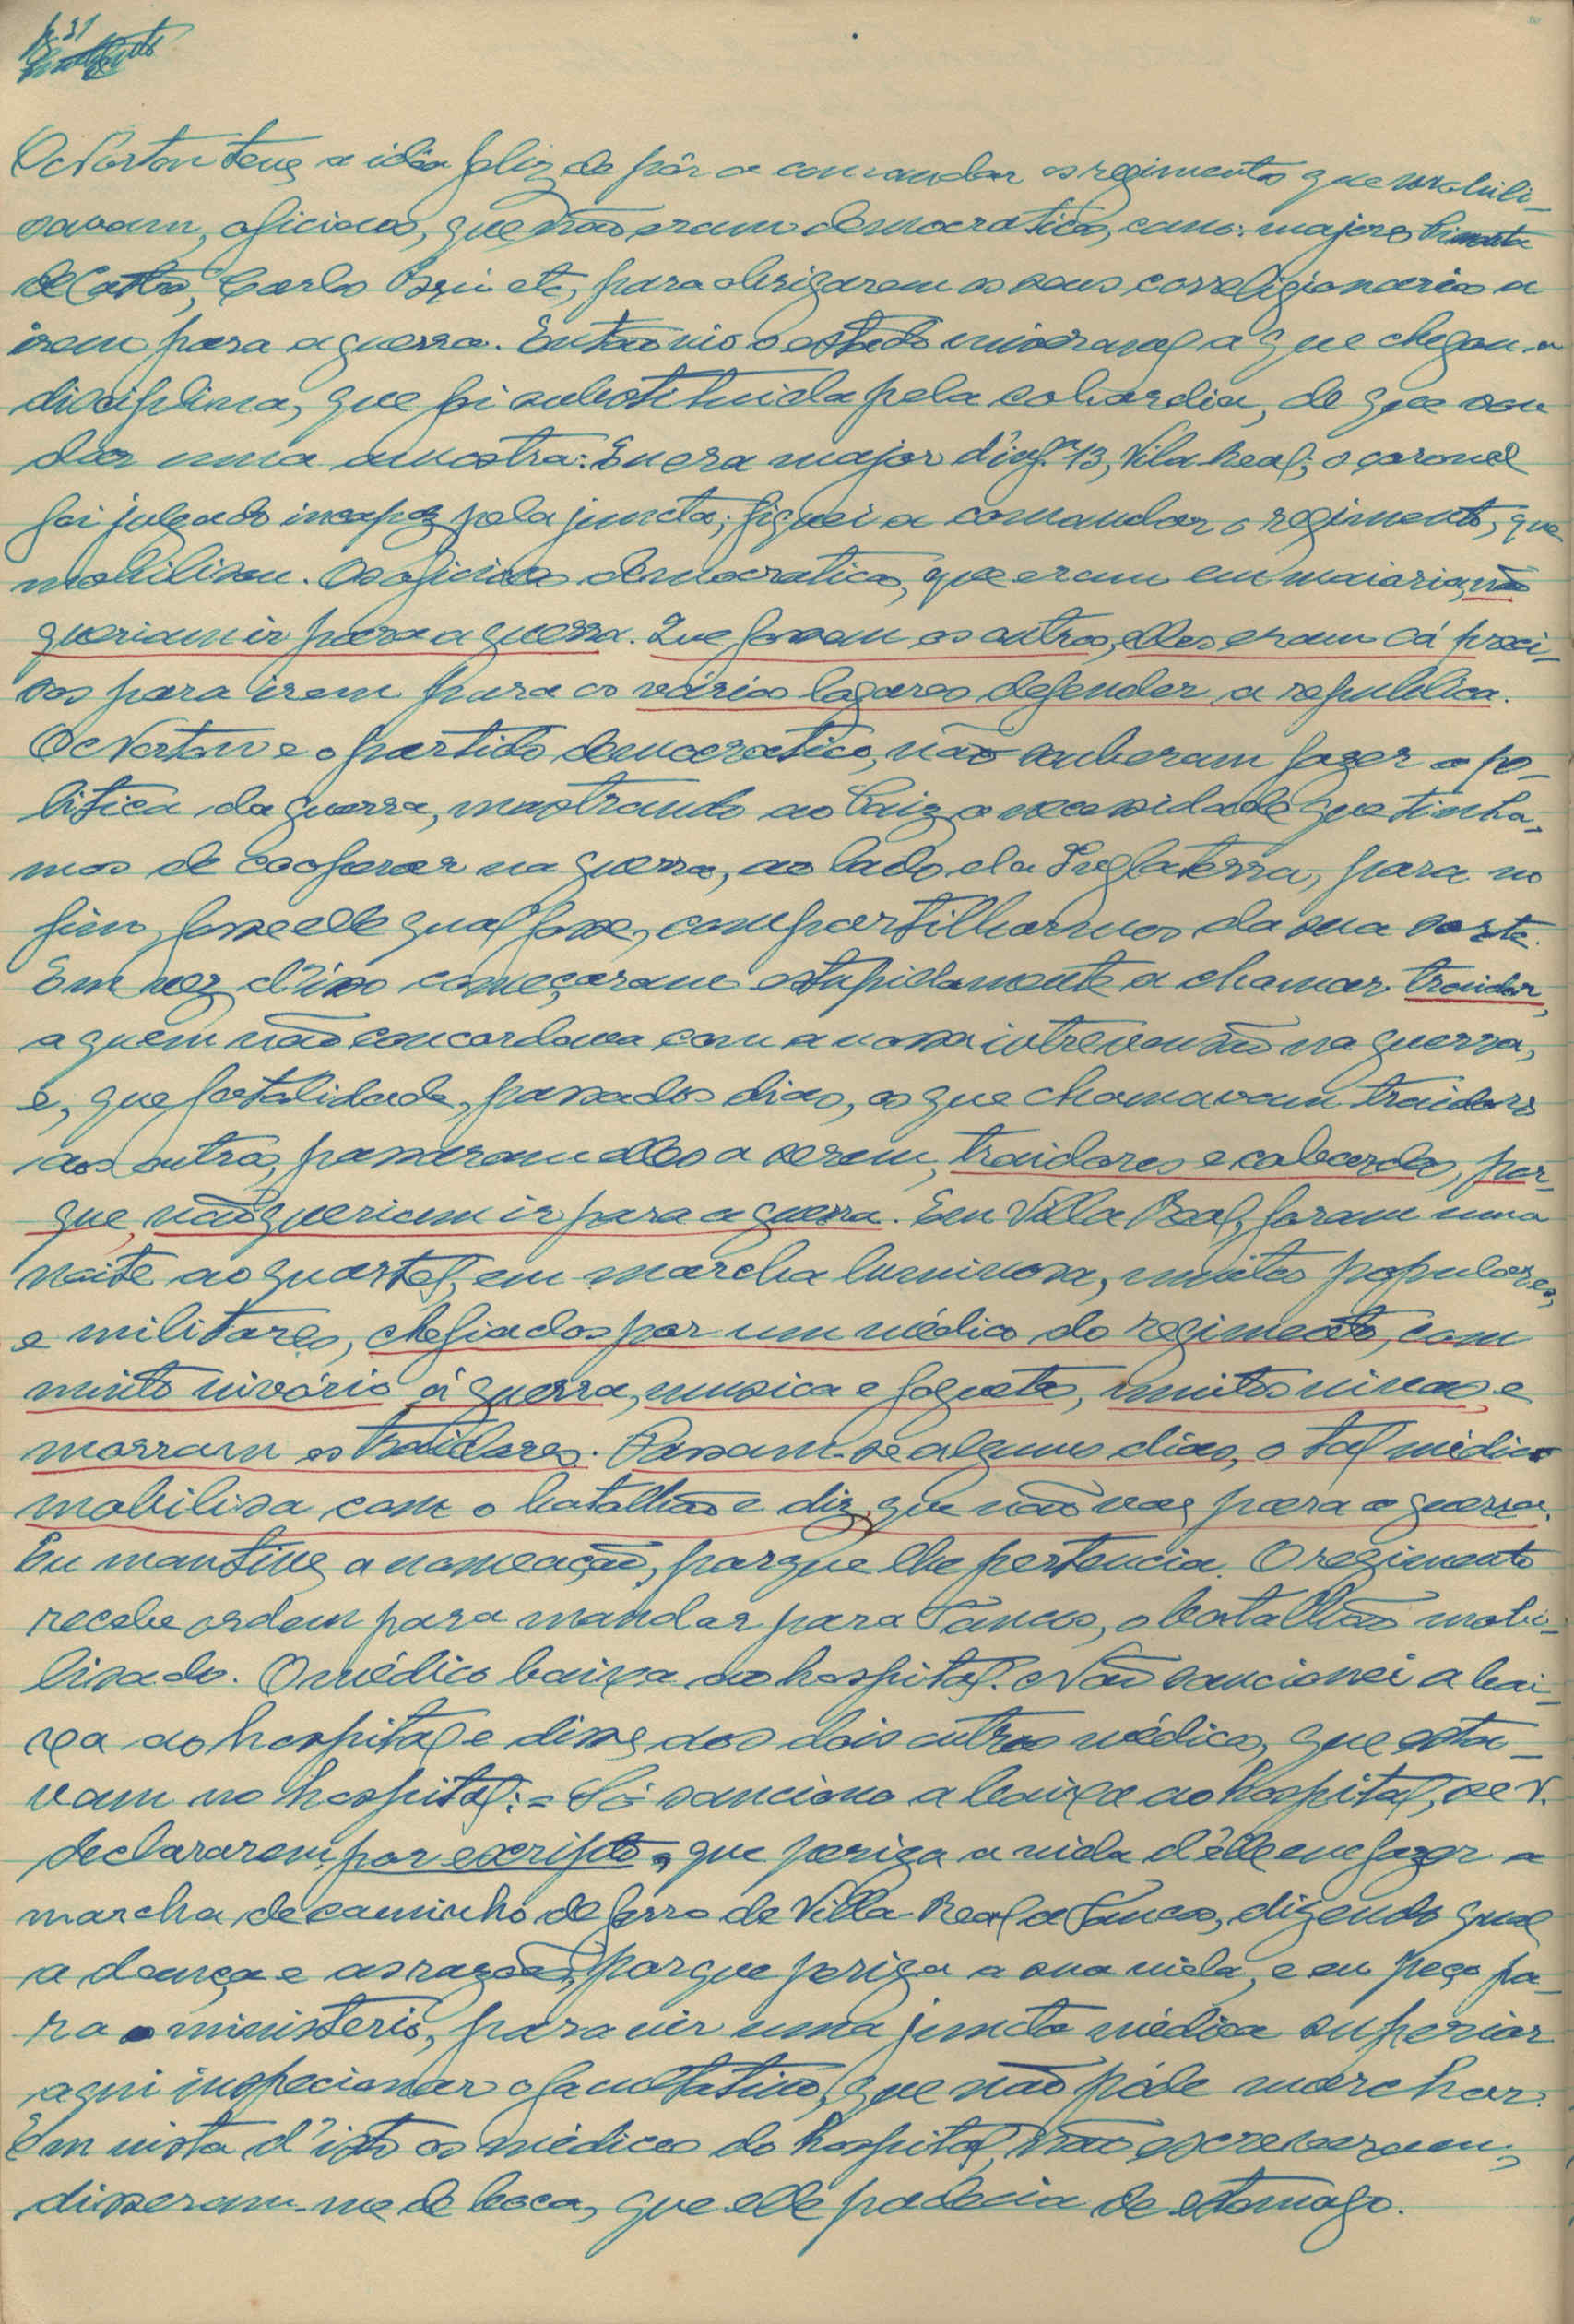 O Norton teve a idéa feliz de pôr a comandar os regimentos que mobili-
savam, oficiaes, que não eram democraticos, como: majores Pimenta
de Castro, Carlos etc, para obrigarem os seus correligionarios a
irem para a guerra. Então vi o estado miseravel a que chegou a
disciplina, que foi substituida pela cobardia, de que vou
dar uma amostra: Eu era major d'inf.ª 13, Vila Real; o coronel
foi julgado incapaz pela juncta; fiquei a comandar o regimento, que
mobilisou. Os oficiaes democraticos, que eram em maioria, não
queriam ir para a guerra. Que fossem os outros, elles eram cá preci-
sos para irem para os vários logares defender a republica.
O Norton e o partido democratico, não souberam fazer a po-
litica da guerra, mostrando ao Paiz a necessidade que tinha-
mos de cooperar na guerra, ao lado da Inglaterra, para no
fim, fosse elle qual fosse, compartilharmos da sua sorte.
Em vez d'isso começaram estupidamente a chamar traidor,
a quem não concordava com a nossa intrevensão na guerra,
e, que fatalidade, passados dias, os que chamavam traidores
aos outros, passaram elles a serem, traidores e cobardes, por-
que, não queriam ir para a guerra. Em Villa Real, foram uma
noite ao quartel, em marcha luminosa, muitos populares,
e militares, chefiados por um médico do regimento, com
muito vivório á guerra, musica e foguetes, muitos vivas, e
morram os traidores. Passam-se alguns dias, o tal médico
mobilisa com o batalhão e diz, que não vae para a guerra.
Eu mantive a nomeação, porque lhe pertencia. O regimento
recebe ordem para mandar para Tancos, o batalhão mobi-
lisado. O médico baixa ao hospital. Não sancionei a bai-
xa ao hospital e disse aos dois outros médicos, que esta-
vam no hospital: = Só sanciono a baixa ao hospital, se V.
declararem, por escripto, que periga a vida d'élle em fazer a
marcha de caminho de ferro de Villa-Real a Tancos, dizendo qual
a doença e as razões, porque periga a sua vida, e eu peço pa-
ra o ministerio, para vir uma juncta médica superior
aqui inspecionar o facultativo, que não póde marchar.
Em vista d'isto os médicos do hospital, não escreveram;
disseram-me de boca, que elle padecia de estomago.